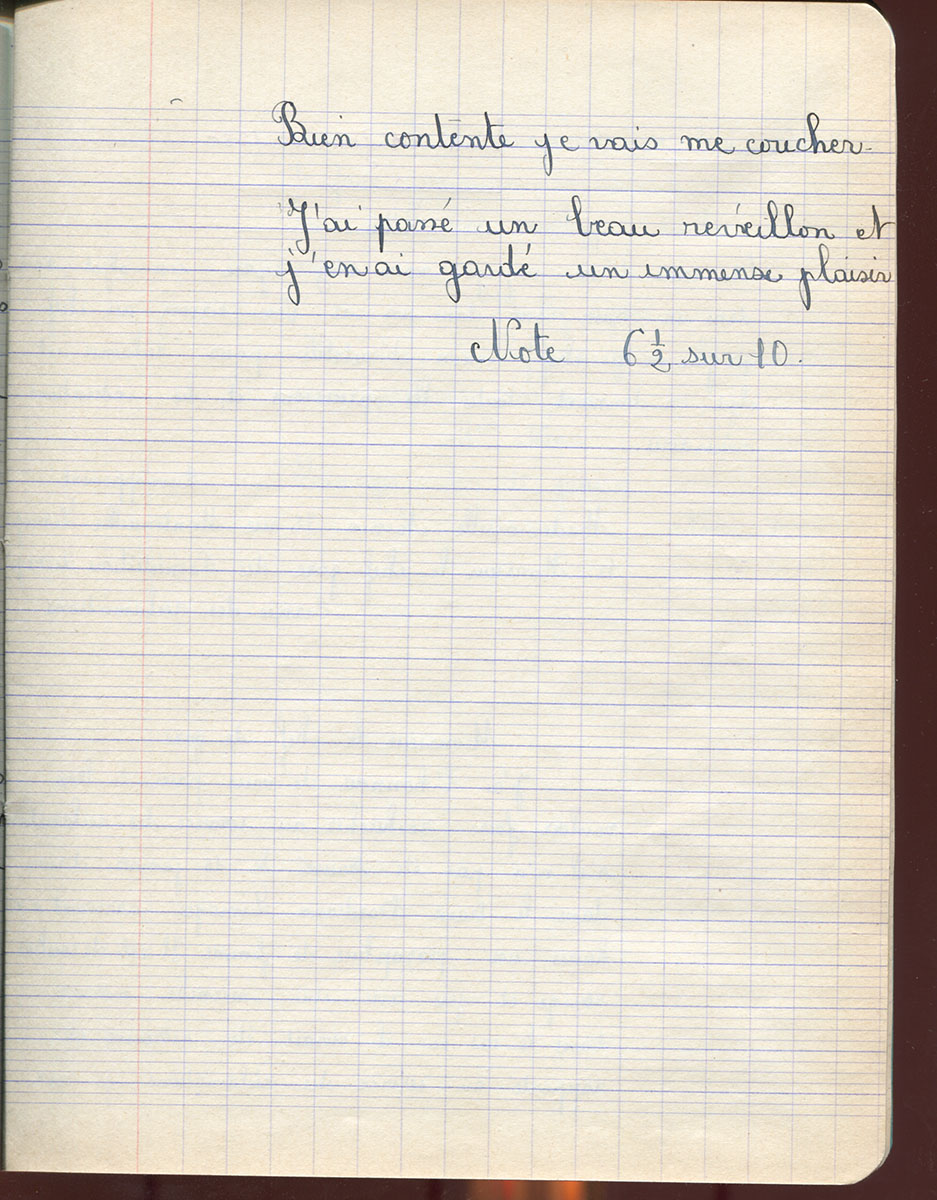 Bien contente je vais me coucher.
J'ai passé un beau reveillon et
j'en ai gardé un immense plaisir
Note 6 ½ sur 10.